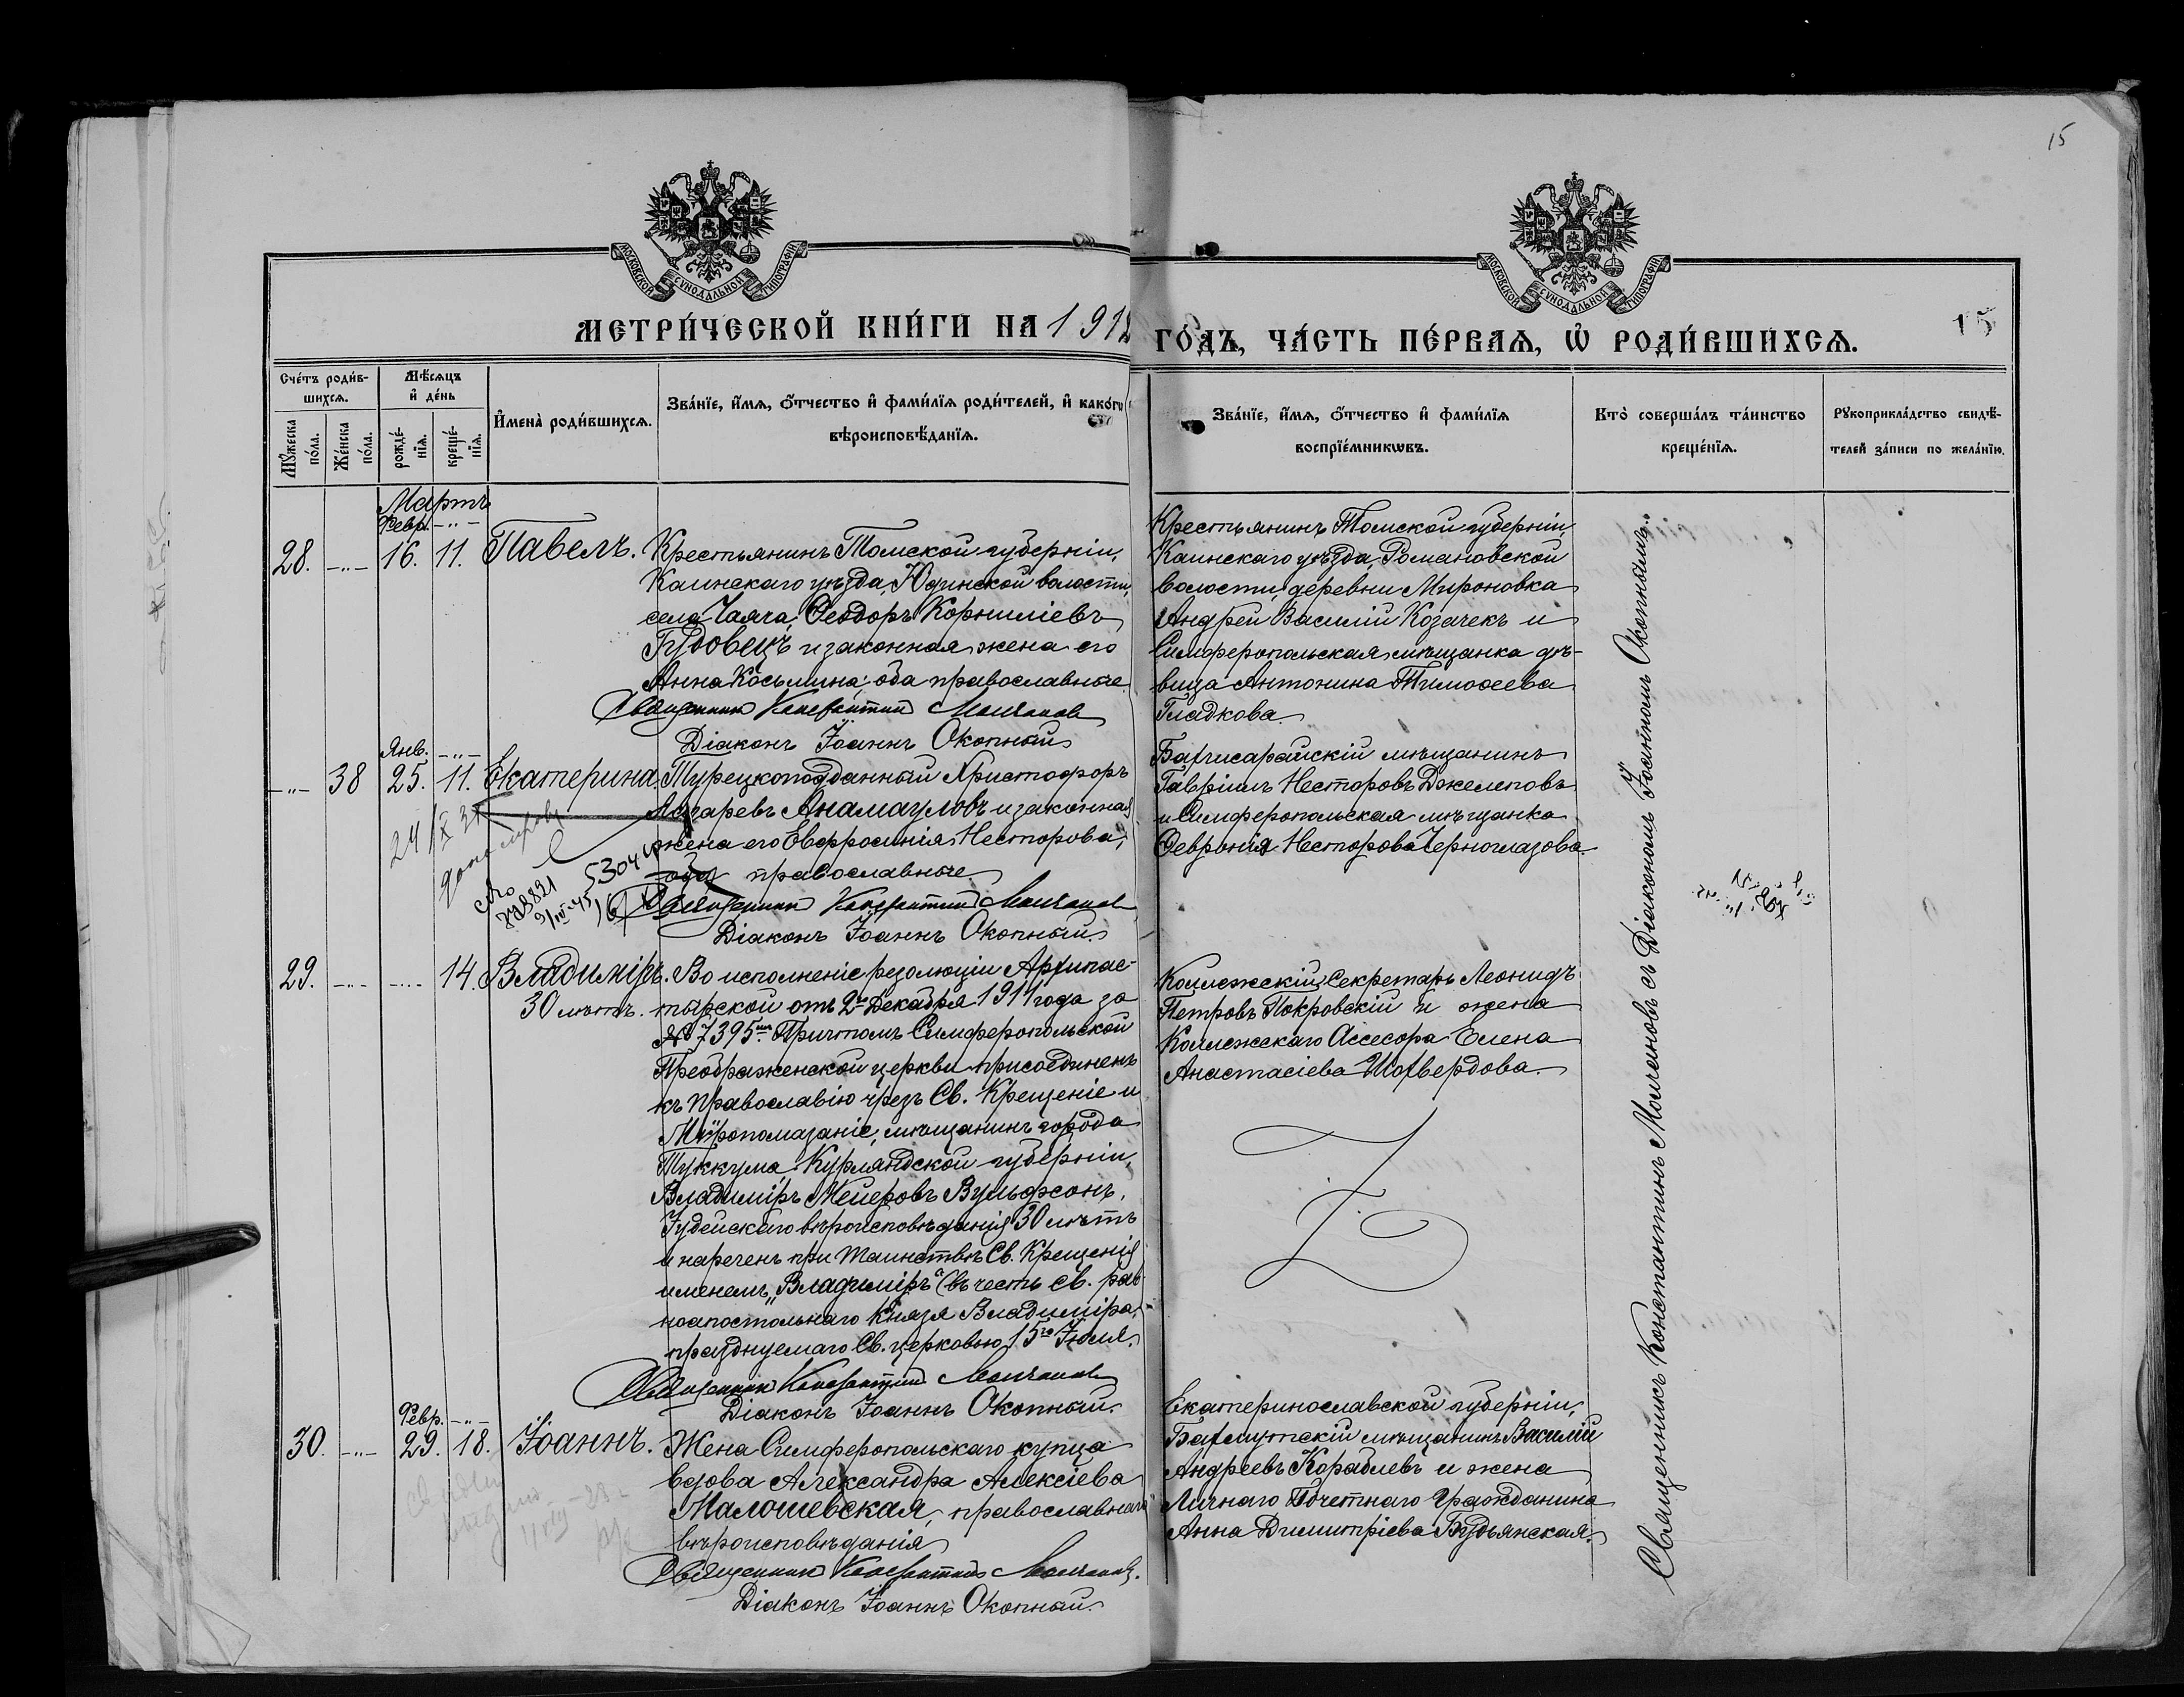 15
МОСКОВСКОЙ СѴНОДАЛЬНОЙ ТИПОГРАФІИ
МОСКОВСКОЙ СѴНОДАЛЬНОЙ ТИПОГРАФІИ
МЕТРИ́ЧЕСКОЙ КНИ́ГИ НА 1912
ГО́ДЪ, ЧА́СТЬ ПЕ́РВАѦ, Ѡ҆ РОДИ́ВШИХСѦ.
15
Сче́тъ роди́в-
шихсѧ.
Мꙋ́жеска по́ла.
Же́нска по́ла.
Мѣ́сѧцъ и҆ де́нь
рожде́-нїѧ.
креще́-нїѧ.
И҆мена̀ роди́вшихсѧ.
Зва́нїе, и҆́мѧ, ѻ҆́тчество и҆ фами́лїѧ роди́телей, и҆ како́гѡ
вѣроисповѣ́данїѧ.
Зва́нїе, и҆́мѧ, ѻ҆́тчество и҆ фами́лїѧ
воспрїе́мникѡвъ.
Кто̀ соверша́лъ та́инство
креще́нїѧ.
Рꙋкоприкла́дство свидѣ́-
телей за́писи по жела́нїю.
Мартъ
Февр. -"-
28. -"- 16. 11. Павелъ.
Крестьянинъ Томской губерніи,
Каинскаго уѣзда, Юдинской волости,
села Чаяча, Ѳеодоръ Корниліевъ
Гудовецъ и законная жена его
Анна Косьмина; оба православные
Священник Константин Молчанов
Діаконъ Іоаннъ Окопный
Крестьянинъ Томской губерніи,
Каинскаго уѣзда, Романовской
волости, деревни Мироновка
Андрей Василій Козачекъ и
Симферопольская мѣщанка дѣ-
вица Антонина Тимоѳеева
Гладкова.
Янв. -"-
-"- 38 25. 11. Екатерина.
Турецкоподданный Христофоръ
Лазаревъ Анамауловъ и законная
жена его Евфросинія Несторова,
оба православные
Священник Константин Молчанов
Діаконъ Іоаннъ Окопный.
Бахчисарайскій мѣщанинъ
Гавріилъ Несторовъ Джелеповъ
и Симферопольская мѣщанка
Февронія Несторова Черноглазова.
29. -"- -"- 14. Владиміръ.
30 лѣтъ.
Во исполненіе резолюціи Архипас-
тырской отъ 2го Декабря 1911 года за
№ 7395мъ Причтомъ Симферопольской
Преображенской церкви присоединенъ
къ Православію чрезъ Св. Крещеніе и
Мѵропомазаніе, мѣщанинъ города
Туккума Курляндской губерніи,
Владиміръ Мейеровъ Вульфсонъ,
Іудейскаго вѣроисповѣданія 30 лѣтъ
и нареченъ при Таинствѣ Св. Крещенія
именемъ „Владиміръ“ (въ честь св. рав-
ноапостольнаго Князя Владиміра,
празднуемаго Св. церковью 15го Іюля.
Священник Константин Молчанов
Діаконъ Іоаннъ Окопный.
Коллежскій Секретарь Леонидъ
Петровъ Покровскій и жена
Коллежскаго Ассесора Елена
Анастасіева Шохвердова.
Февр. -"-
30. -"- 29. 18. Іоаннъ.
Жена Симферопольскаго купца
вдова Александра Алексіева
Малошевская, православнаго
вѣроисповѣданія
Священник Константин Молчанов.
Діаконъ Іоаннъ Окопный.
Екатеринославской губерніи,
Бахмутскій мѣщанинъ Василій
Андреевъ Кораблевъ и жена
Личнаго Почетнаго Гражданина
Анна Димитріева Будьянская.
Священникъ Константинъ Молчановъ съ Діакономъ Іоанномъ Окопнымъ.